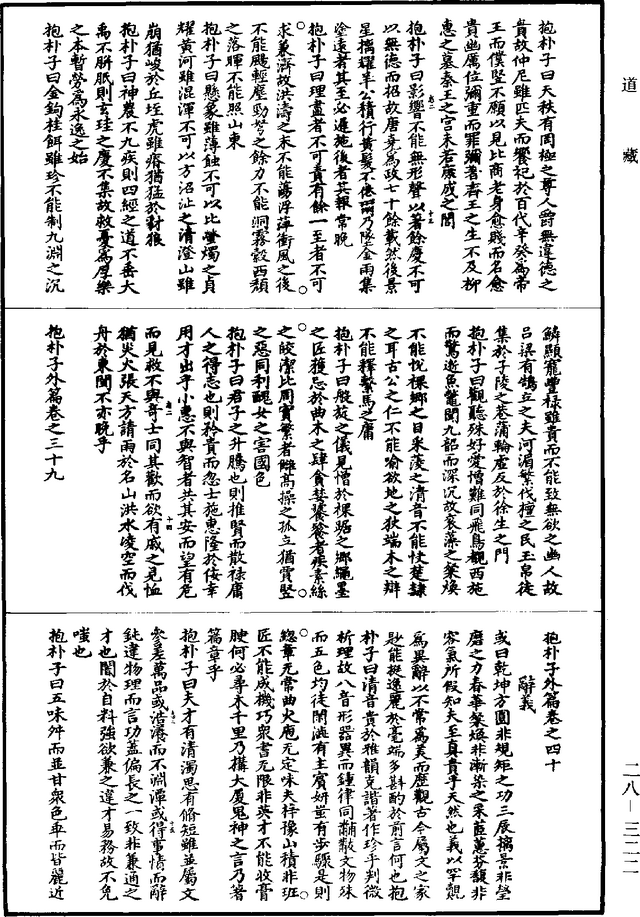 道藏
抱朴子曰天秩有罔極之尊人爵無違德之
貴故仲尼雖匹夫而饗祀於百代辛癸為帝
王而僕竪不願以見比商老身愈賤而名愈
貴幽厲位彌重而罪彌著齊王之生不及柳
惠之墓秦王之宮未若康成之閭
抱朴子曰影響不能無形聲以著餘慶不可
以無德而招故唐堯為政七十餘載然後景
星摛耀羊公積行黃髮不倦爾乃墜金雨集
塗遠者其至必遲施後者其報常晚
抱朴子曰理盡者不可責有餘一至者不可
求兼濟故洪濤之末不能蕩浮萍衝風之後
不能颺輕塵勁弩之餘力不能洞霧縠西頹
之落暉不能照山東
抱朴子曰懸象雖薄蝕不可以比螢燭之貞
耀黃河雖混渾不可以方沼沚之清澄山雖
崩猶峻於丘垤虎雖瘠猶猛於豺狼
抱朴子曰神農不九疾則四經之道不垂大
禹不胼胝則玄珪之慶不集故救憂為厚樂
之本暫勞為永逸之始
抱朴子曰金鉤桂餌雖珍不能制九淵之沉
鱗顯寵豐祿雖貴而不能致無欲之幽人故
呂梁有鵠立之夫河湄繁伐檀之民玉帛徒
集於子陵之巷蒲輪虛反於徐生之門
抱朴子曰觀聽殊好愛憎難同飛鳥覩西施
而驚逝魚鼈聞九韶而深沉故袞藻之粲煥
不能悅裸鄉之目采菱之清音不能快楚隸
之耳古公之仁不能喻欲地之狄端木之辯
不能釋繫馬之庸
抱朴子曰般旋之儀見憎於裸踞之鄉繩墨
之匠獲忌於曲木之肆貪婪饕餮者疾素絲
之皎潔比周實繁者讎高操之孤立猶賈竪
之惡同利醜女之害國色
抱朴子曰君子之升騰也則推賢而散祿庸
人之得志也則矜貴而忽士施惠隆於佞幸
用才出乎小惠不與智者共其安而望有危
而見救不與奇士同其歡而欲有戚之見恤
猶災火張天方請雨於名山洪水凌空而伐
舟於東閩不亦晚乎
抱朴子外篇卷之三十九
抱朴子外篇卷之四十
辭義
或曰乾坤方圓非規矩之功三辰摛景非瑩
磨之力春華粲煥非漸染之采茝蕙芬馥非
容氣所假知夫至真貴乎天然也義以罕覯
為異辭以不常為美而歷觀古今屬文之家
尠能挺逸麗於毫端多斟酌於前言何也抱
朴子曰清音貴於雅韻克諧著作珍乎判微
析理故八音形器異而鍾律同黼黻文物殊
而五色均徒閑澁有主賓妍蚩有步驟是則
總章无常曲大庖无定味夫梓豫山積非班
匠不能成機巧衆書无限非英才不能收膏
腴何必尋木千里乃構大厦鬼神之言乃著
篇章乎
抱朴子曰夫才有清濁思有脩短雖並屬文
參差萬品或浩瀁而不淵潭或得事情而辭
鈍違物理而言功蓋偏長之一致非兼通之
才也闇於自料強欲兼之違才易務故不免
嗤也
抱朴子曰五味舛而並甘衆色乖而皆麗近
二八—三二二